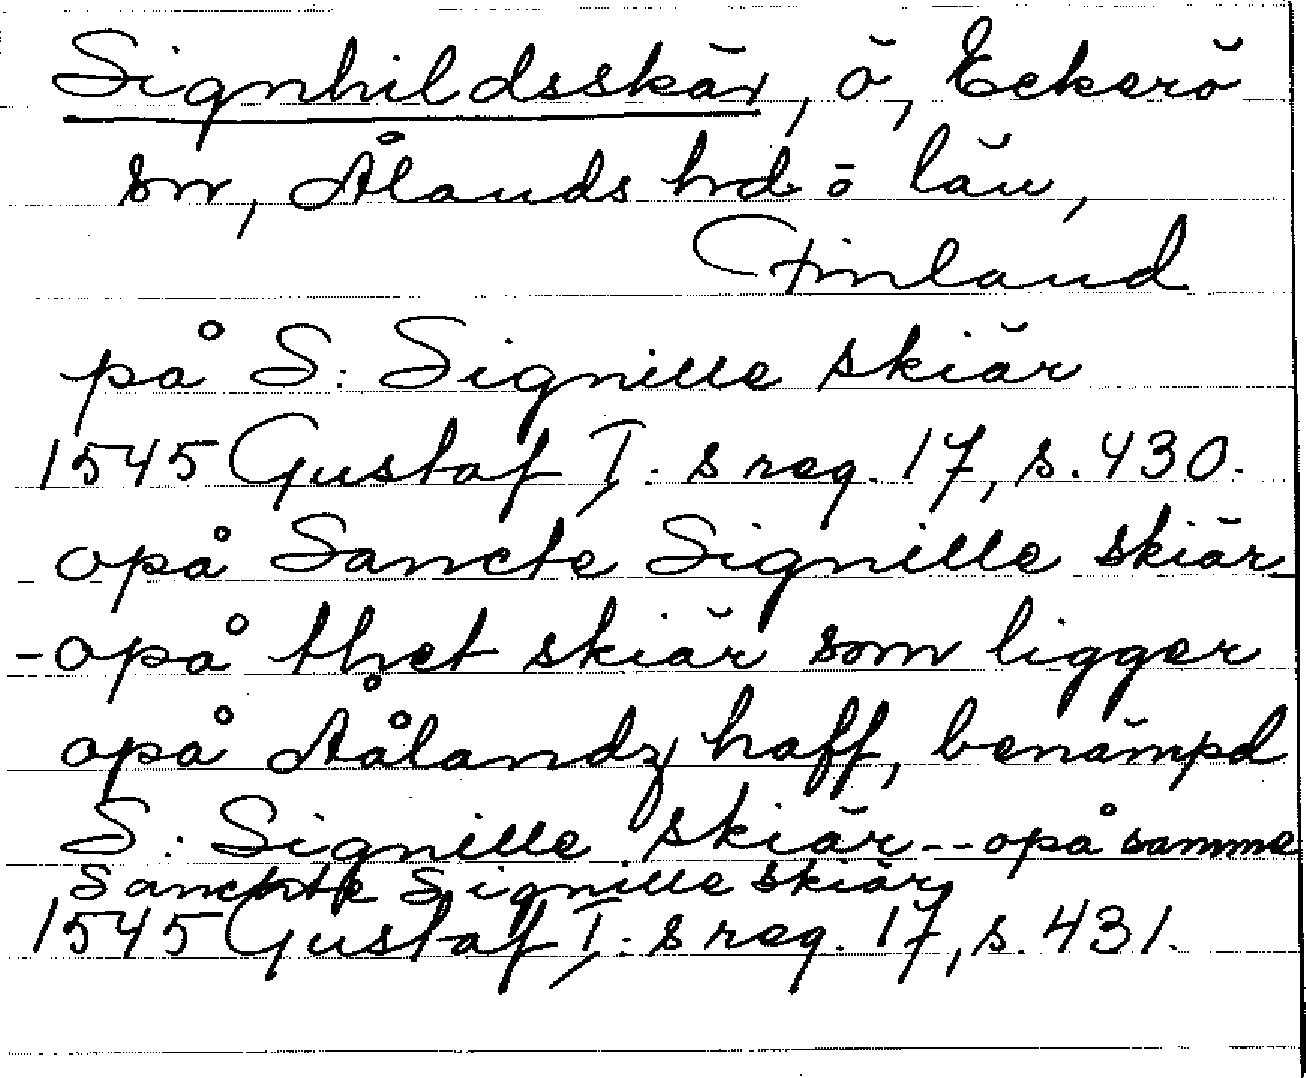 Signhildsskär, ö, Eckerö
sn, Ålands hd o län,
Finland
på S: Signille skiär
1545 Gustaf I:s reg. 17, s. 430.
opå Sancte Signille skiär
- opå thet skiär som ligger
opå Åålandz haff, benämpd
S: Signille skiär -- opå samme
Sanchte Signille skiär
1545 Gustaf I:s reg. 17, s. 431.